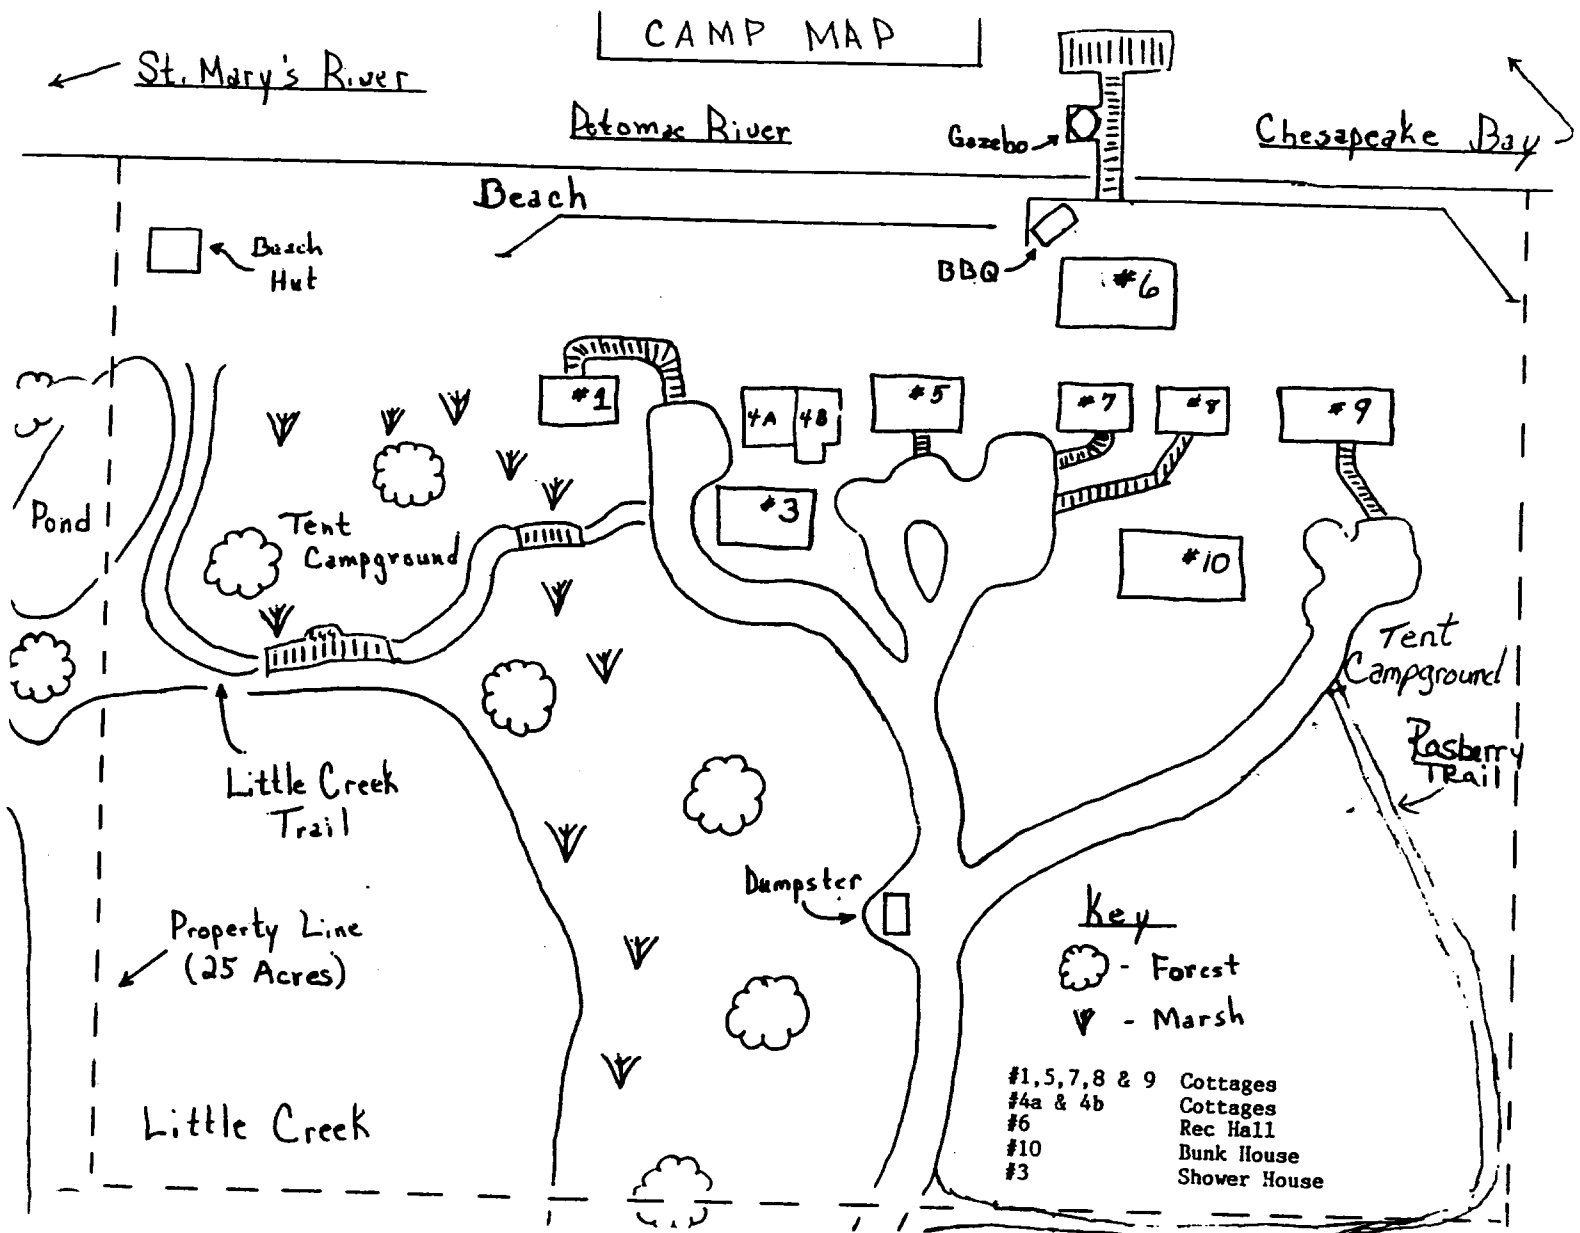 CAMP MAP
St. Mary's River
Potomac River
Gazebo
Chesapeake Bay
Beach
Beach
Hut
BBQ
#6
#1
4A
4B
#5
#7
#8
#9
#3
#10
Pond
Tent
Campground
Tent
Campground
Rasberry
TRail
Little Creek
Trail
Dumpster
Property Line
(25 Acres)
Key
- Forest
- Marsh
#1,5,7,8 & 9 Cottages
#4a & 4b Cottages
#6 Rec Hall
#10 Bunk House
#3 Shower House
Little Creek